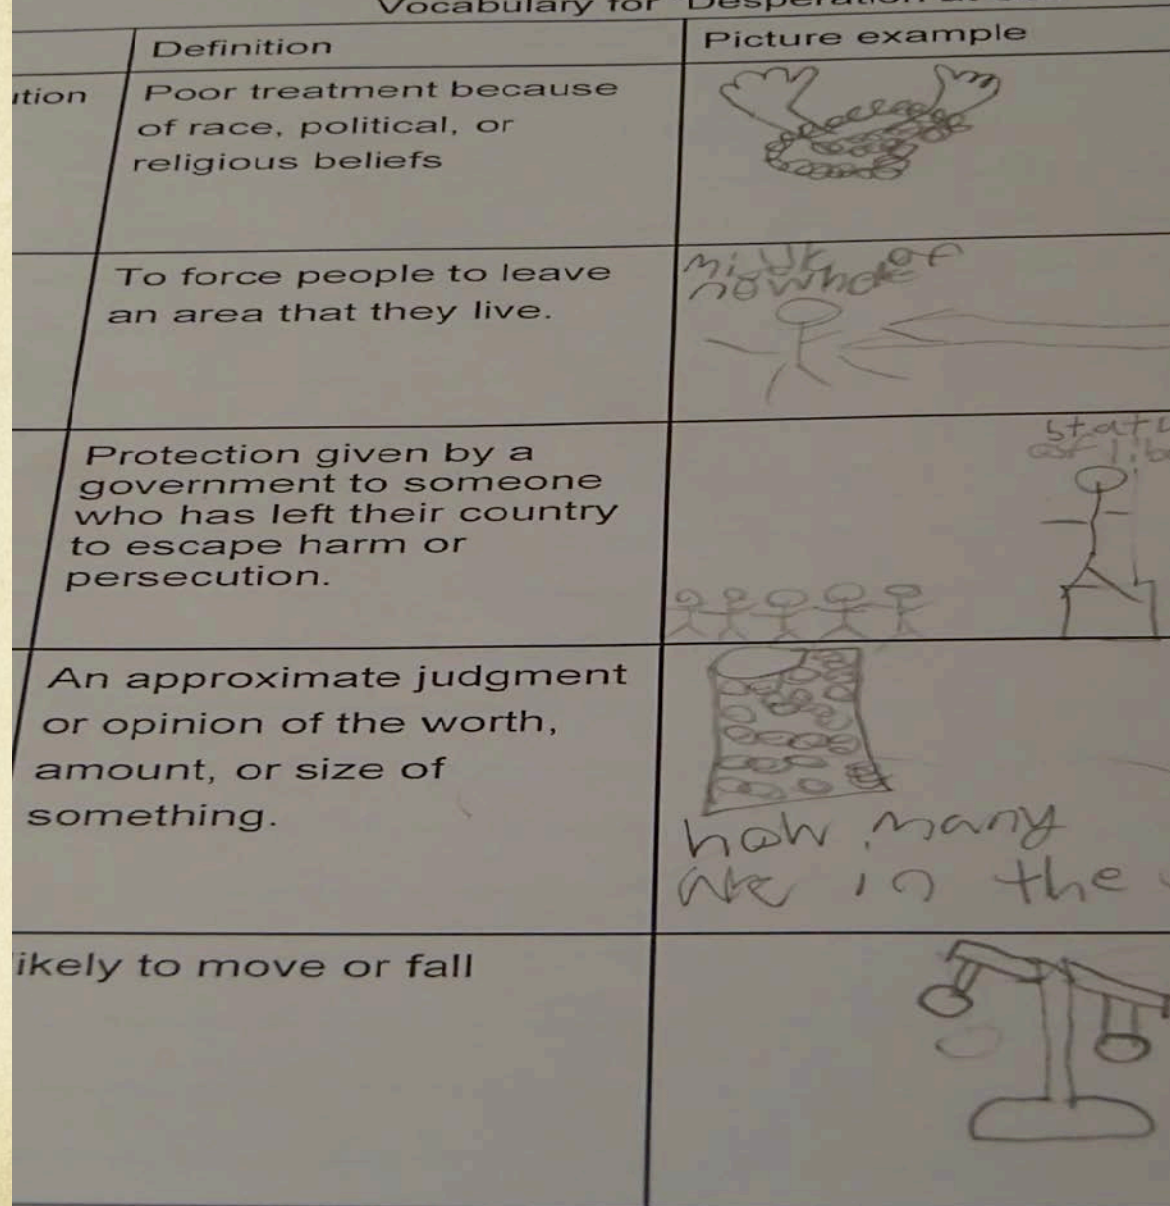 Vocabulary for "Desperation at
Definition
Picture example
ution
Poor treatment because
of race, political, or
religious beliefs
To force people to leave
an area that they live.
of
Protection given by a
government to someone
who has left their country
to escape harm or
persecution.
stat
of lib
An approximate judgment
or opinion of the worth,
amount, or size of
something.
how many
are in the
ikely to move or fall